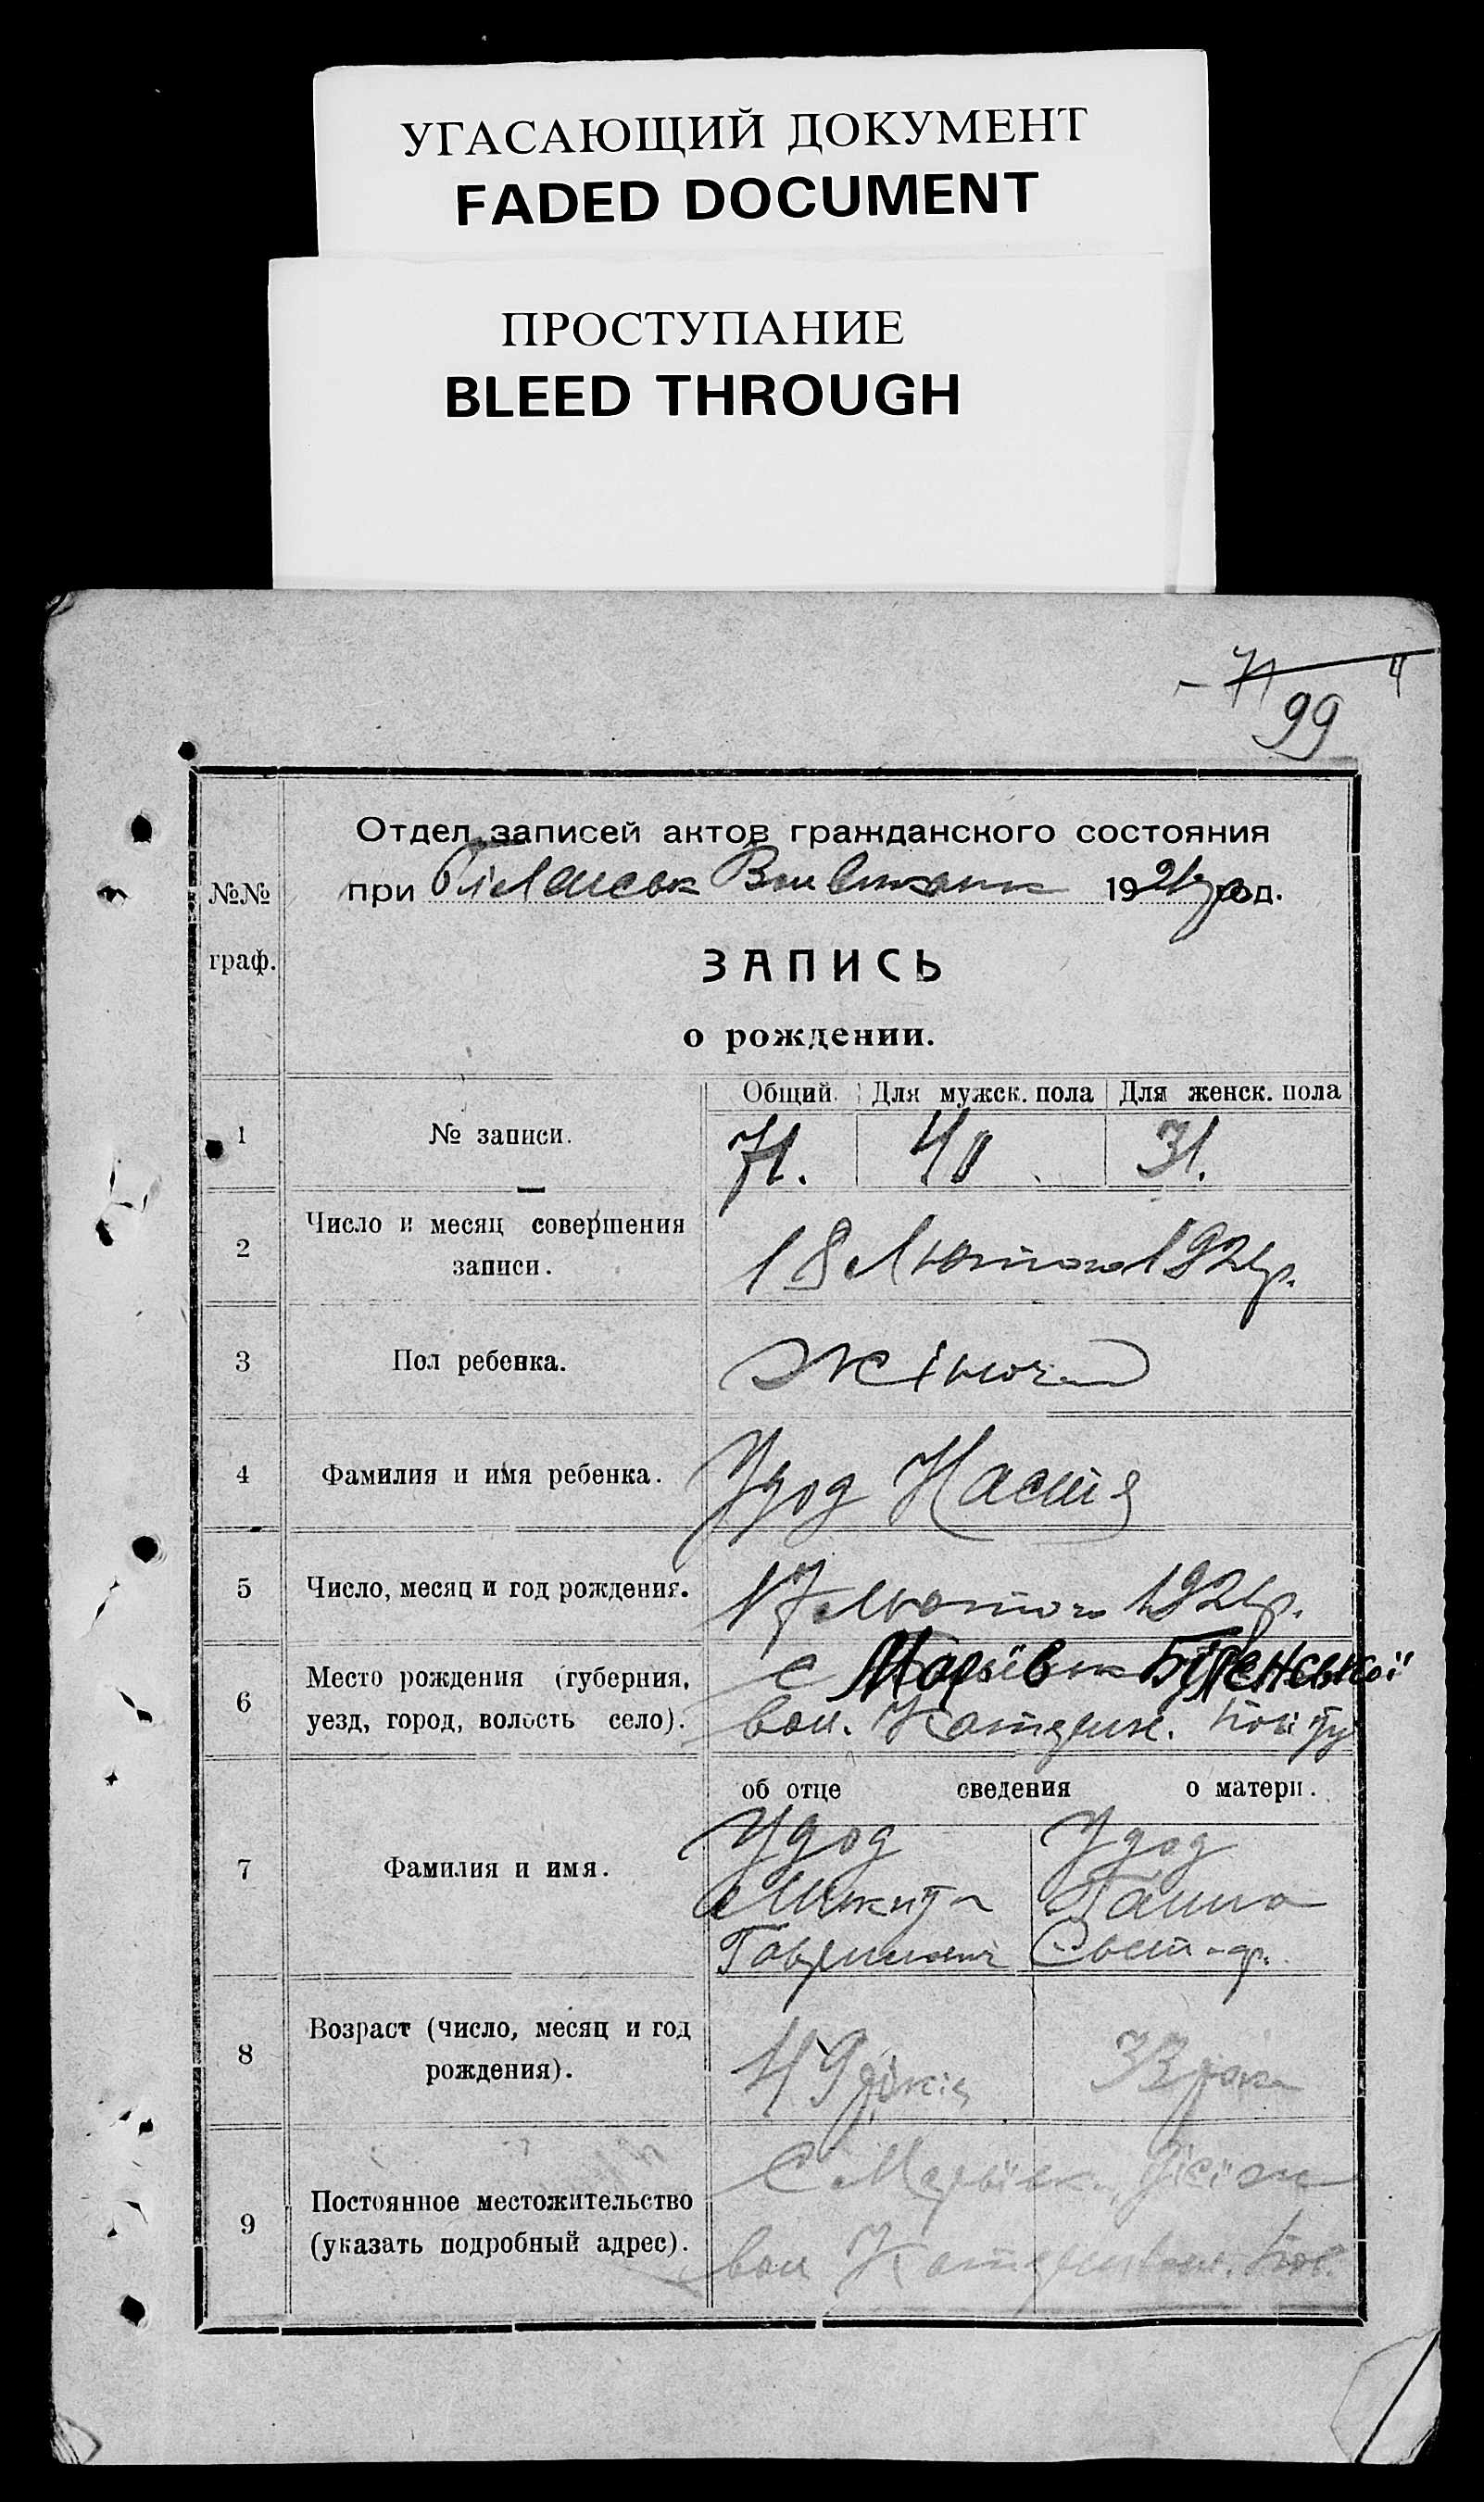 УГАСАЮЩИЙ ДОКУМЕНТ
FADED DOCUMENT
ПРОСТУПАНИЕ
BLEED THROUGH
71
99
Отдел записей актов гражданского состояния
при 1921р год.
№№
граф.
ЗАПИСЬ
о рождении.
Общий. Для мужск. пола Для женск. пола
1 № записи. 71. 40 31.
2 Число и месяц совершения
записи. 18 Лютого 1921р.
3 Пол ребенка. Жіноча
4 Фамилия и имя ребенка. Удод Настя
5 Число, месяц и год рождения. 17 Лютого 1921р.
6 Место рождения (губерния, с Марьївка Біленської
уезд, город, волость село). вол. Катерин. повіту
об отце сведения о матери.
7 Фамилия и имя. Удод Удод
Микита Ганна
Гаврилович
8 Возраст (число, месяц и год
рождения). 49 років 33 роки
9 Постоянное местожительство С Марьївка
(указать подробный адрес). вол Катерин пов.